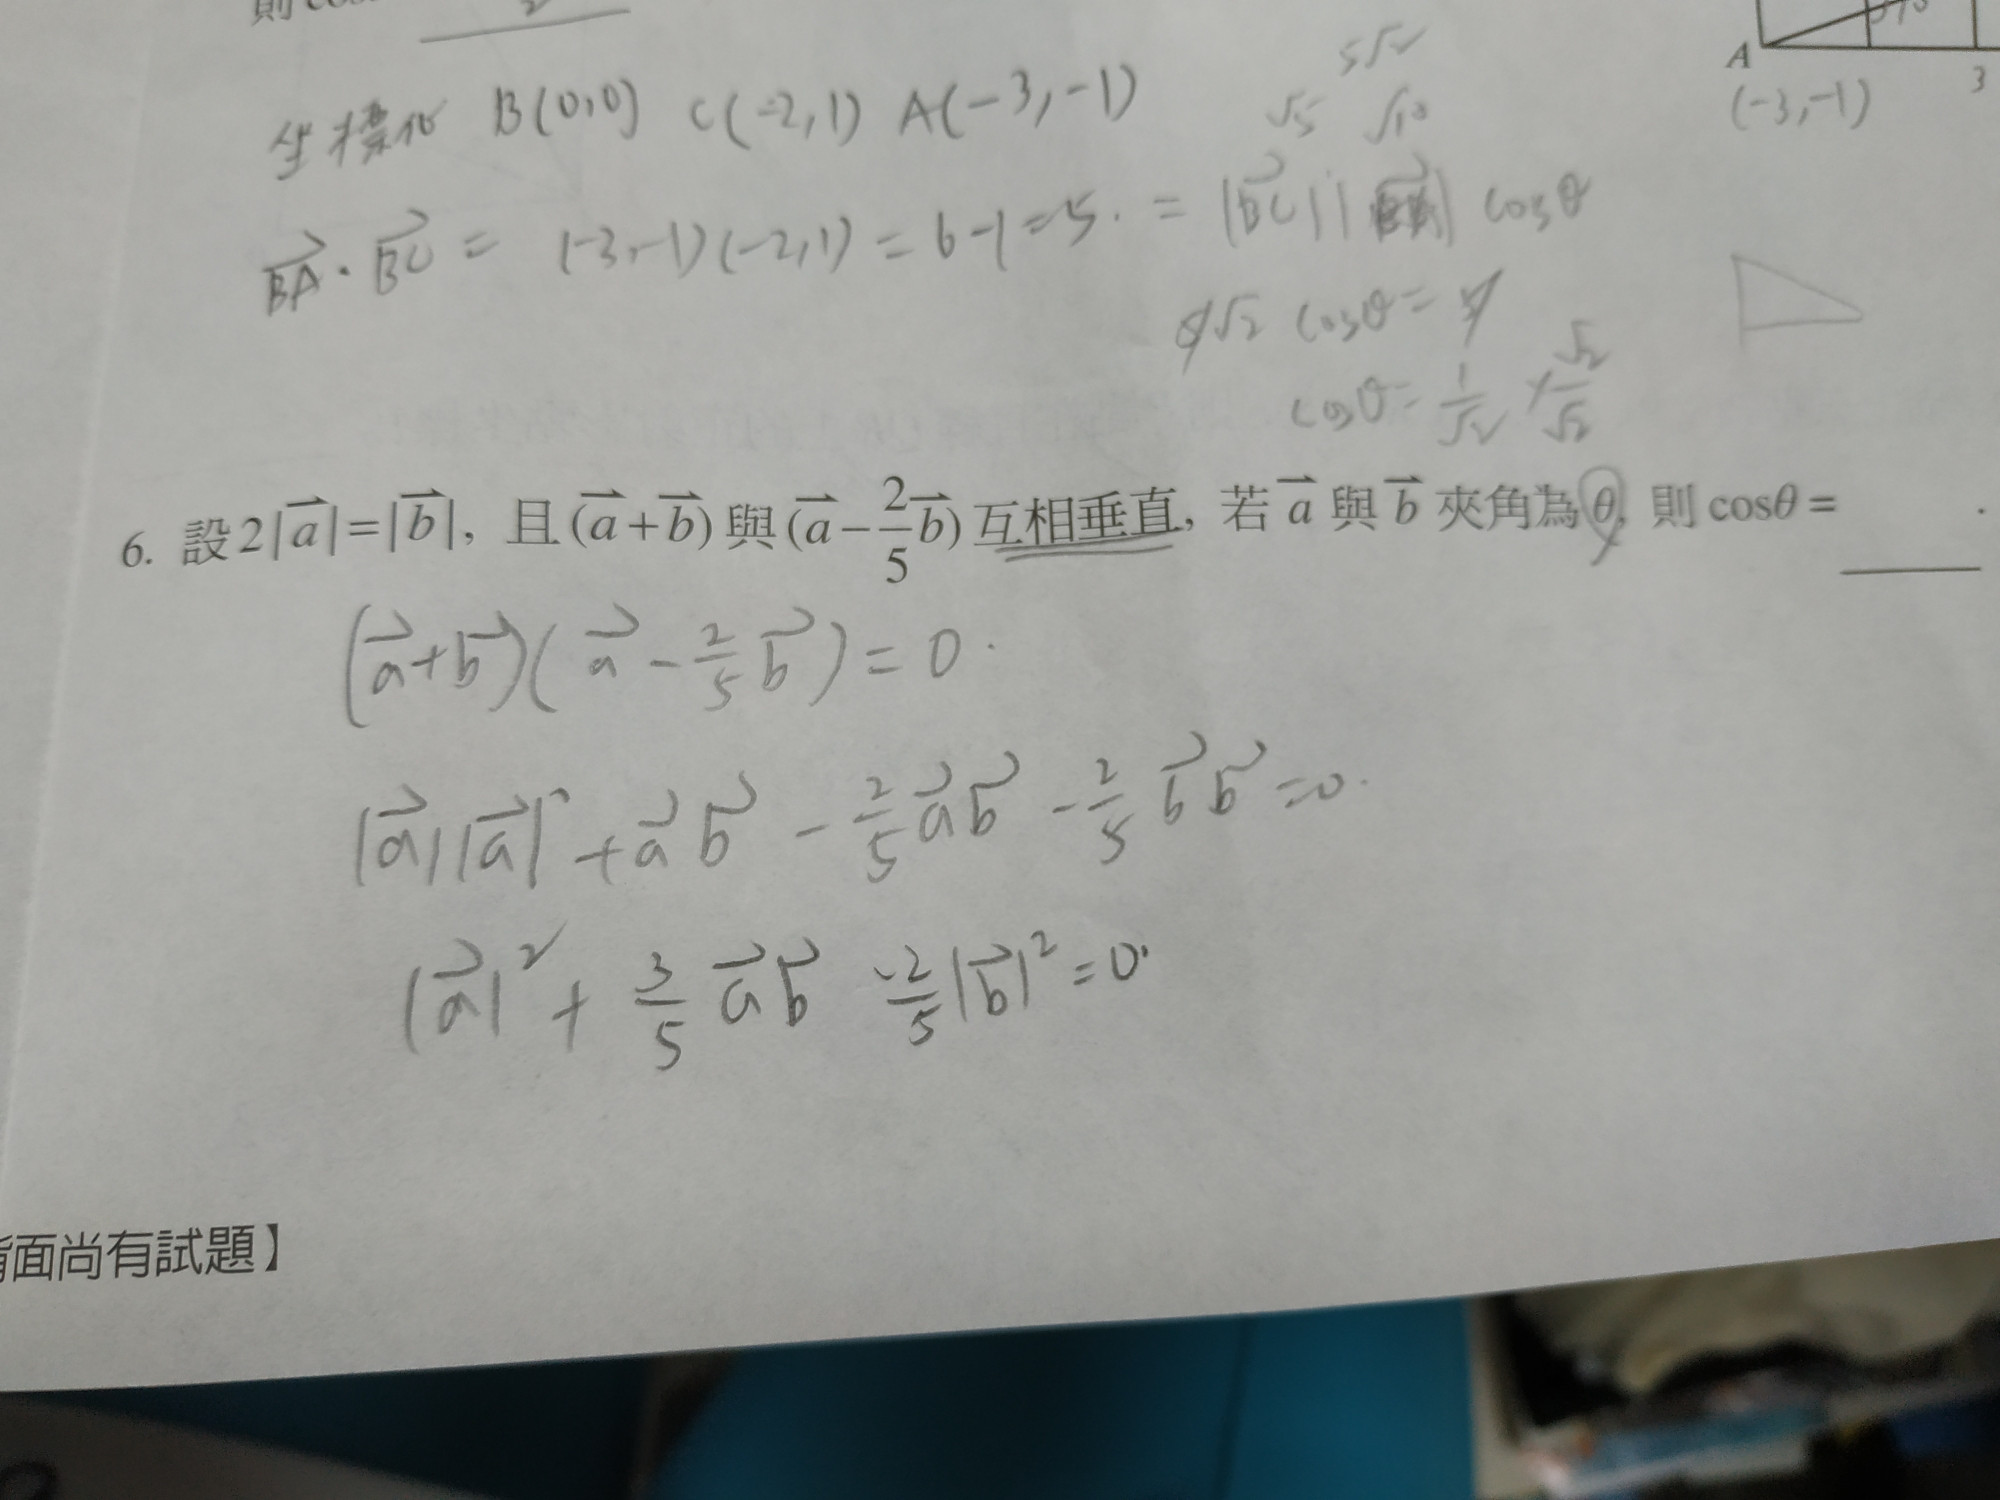 則cos
坐標化 B(0,0) C(-2,1) A(-3,-1)
5√2
√5 √10
A
(-3,-1)
3
BA⃗ · BC⃗ = (-3,-1)(-2,1) = 6-1=5. = |BC⃗| | | cosθ
5√2 cosθ = 5
cosθ = 1/√2 × √2/√2
6. 設2|a⃗|=|b⃗|, 且(a⃗+b⃗)與(a⃗-2/5b⃗)互相垂直, 若a⃗與b⃗夾角為θ, 則cosθ= .
(a⃗+b⃗)(a⃗-2/5b⃗)=0.
|a⃗||a⃗|+a⃗b⃗-2/5a⃗b⃗-2/5b⃗b⃗=0.
|a⃗|²+3/5a⃗b⃗-2/5|b⃗|²=0.
背面尚有試題】